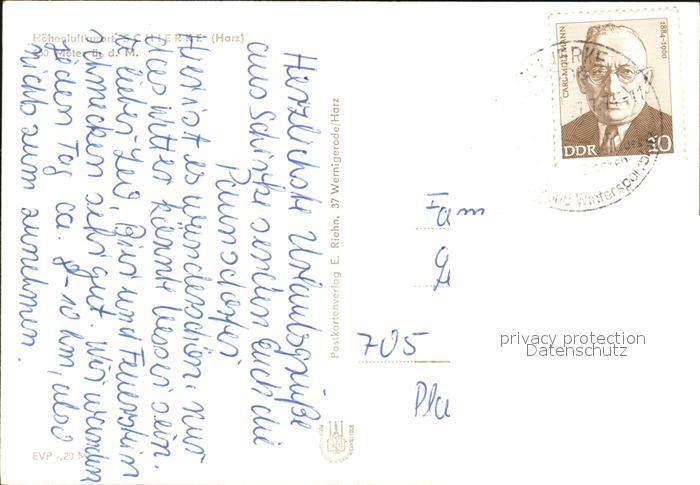 Höhenluftkurort SCHIERKE (Harz)
Meter ü. d. M.
Herzlichste Urlaubsgrüße
aus Schierke senden Euch die
Paunsdorfer
Hier ist es wunderschön, nur
das Wetter könnte besser sein.
Ihr lieben Bier und Feuerstein
schmecken sehr gut. Wir wandern
jeden Tag ca. 8-10 km, also
nichts zum zunehmen.
EVP -,20 M
Postkartenverlag E. Riehn, 37 Wernigerode/Harz
CARL MOLTMANN
1884-1960
DDR 10
SCHIERKE
und Wintersport
Fam
705
privacy protection
Datenschutz